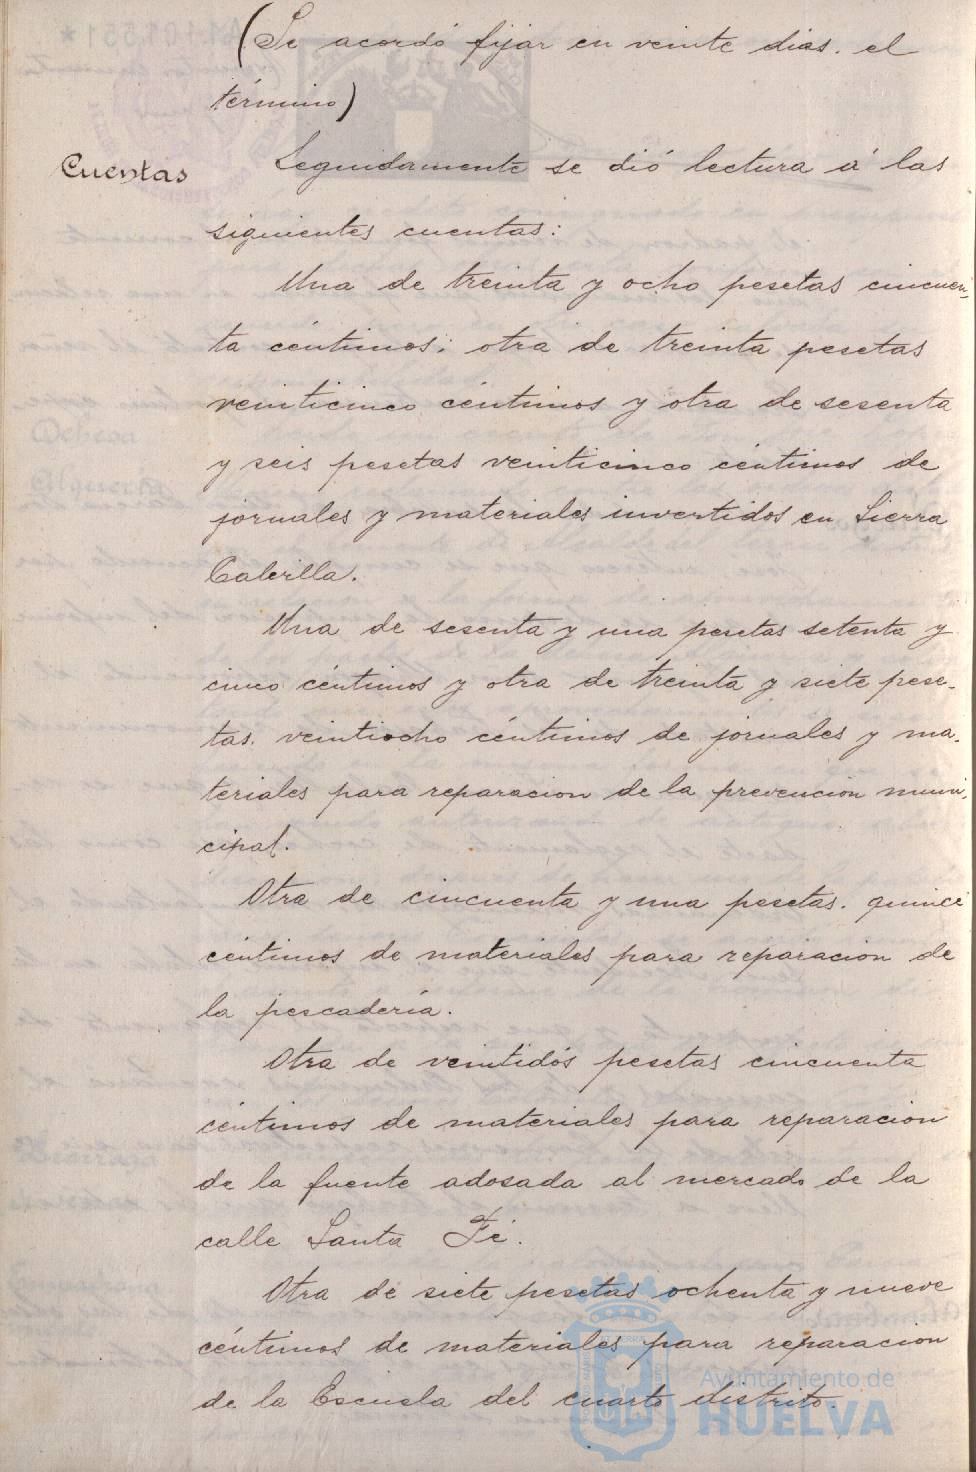 (Se acordó fijar en veinte dias. el
término)
Cuentas
Seguidamente se dió lectura á las
siguientes cuentas:
Una de treinta y ocho pesetas cincuen-
ta céntimos; otra de treinta pesetas
veinticinco céntimos y otra de sesenta
y seis pesetas veinticinco céntimos de
jornales y materiales invertidos en Sierra
Calerilla.
Una de sesenta y una pesetas setenta y
cinco céntimos y otra de treinta y siete pese-
tas. veintiocho céntimos de jornales y ma-
teriales para reparacion de la prevencion muni-
cipal.
Otra de cincuenta y una pesetas. quince
céntimos de materiales para reparacion de
la pescadería.
Otra de veintidós pesetas cincuenta
céntimos de materiales para reparacion
de la fuente adosada al mercado de la
calle Santa Fé.
Otra de siete pesetas ochenta y nueve
céntimos de materiales para reparacion
de la Escuela del cuarto distrito.
Ayuntamiento de
HUELVA